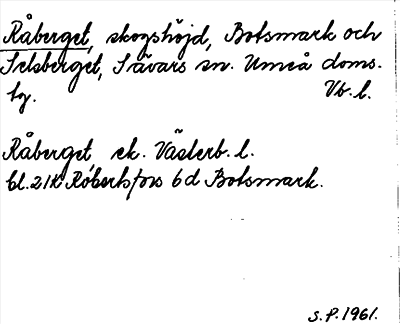 Råberget, skogshöjd, Botsmark och
Selsberget, Sävars sn. Umeå doms.
lg. Vb. l.
Råberget ek. Västerb. l.
bl. 21K Robertsfors 6d Botsmark.
S.P. 1961.